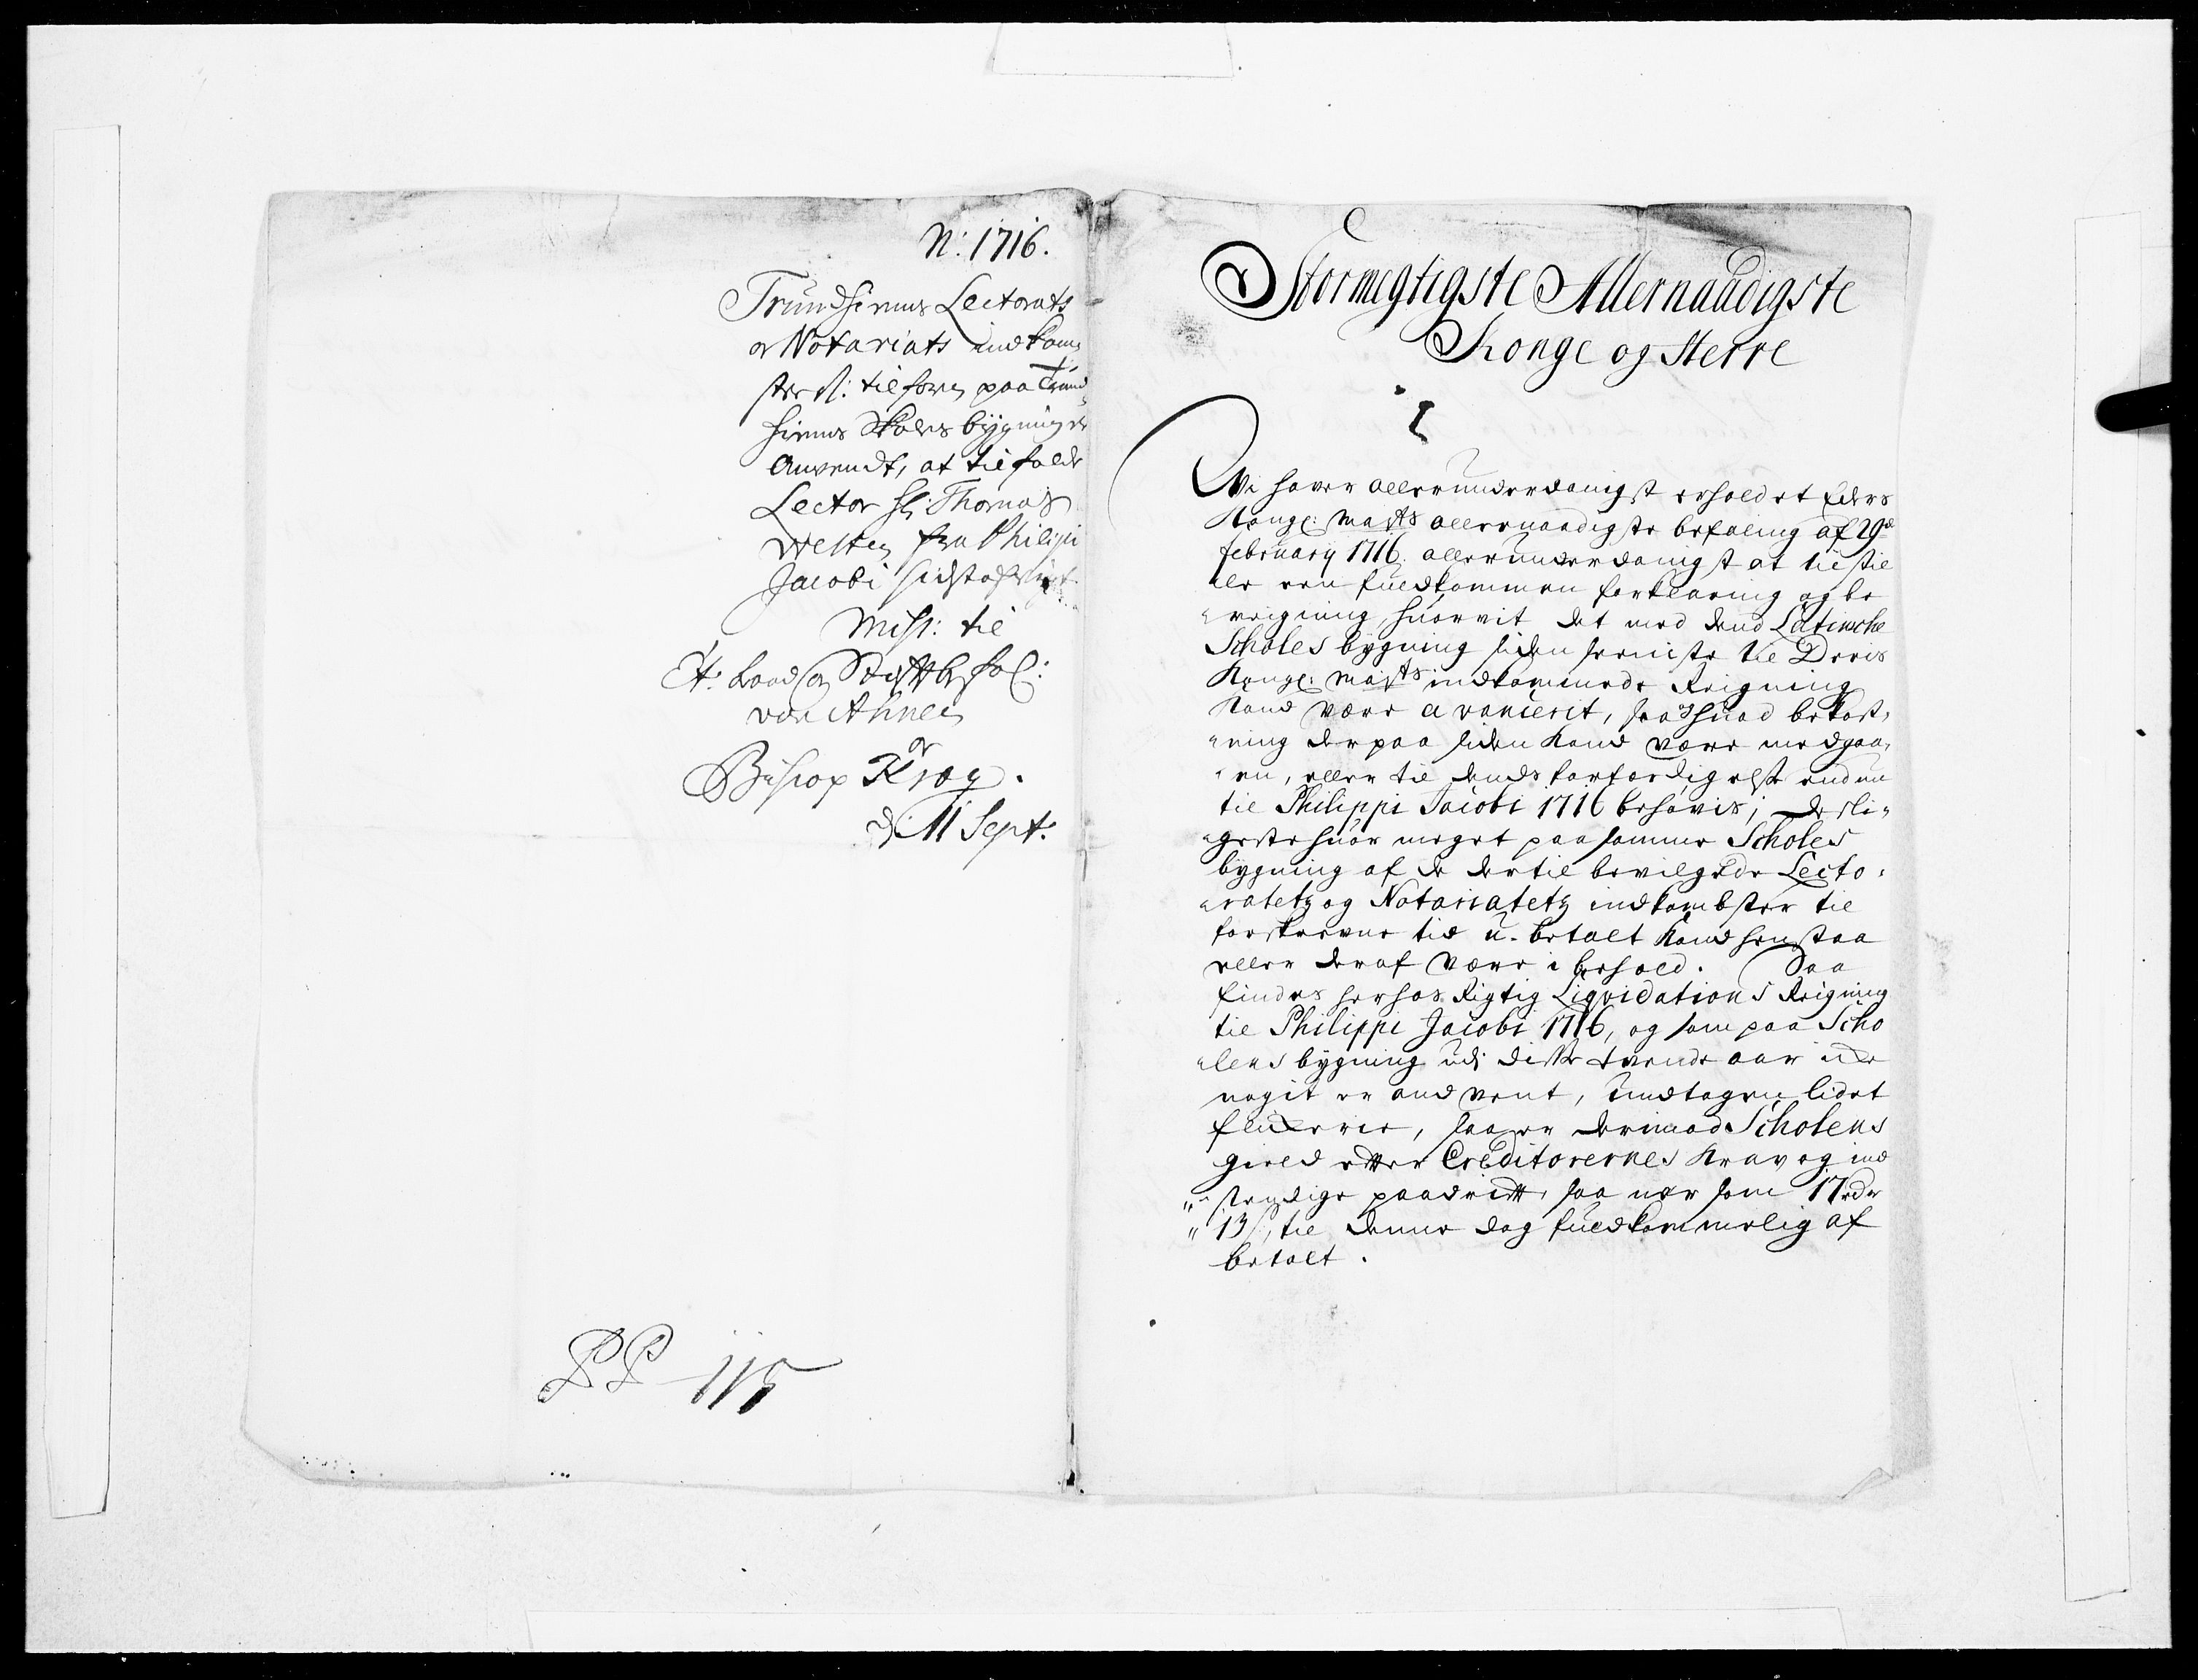 N: 1716.
Trundhiems Lectorats
og Notariats indkom-
ster tilforn paa Trund-
hiems Skoles bygning er
Anvendt, at tilfalde
Lector Hr: Thomas
Westen fra Philippi
Jacobi sidst
Miss: til
Et: Raad og Stiftbefal:
von Ahnen
og
Bishop Krog.
d: 11 Sept.
PP 115
Stormegtigste Allernaadigste
Konge og Herre
Vi haver allerunderdanigst erholdet Eders
Kongl: Maysts allernaadigste befaling af 29d
february 1716. allerunderdanigst at tilstil
le een fuldkommen forklaring og be
reigning, huorvit det med dend Latinsche
Scholes bygning siden seeniste til Deris
Kongl: Maysts indkommede Reigning
kand være avancerit, saa og huad bekost-
ning derpaa siden kand være medgaa-
en, eller til dends forfærdigelse endnu
til Philippi Jacobi 1716 behøvis; desli-
geste huor meget paa samme Scholes
bygning af de dertil bevilgede Lecto-
ratetz og Notariatetz indkombster til
forskrevne tid u-betalt kand henstaa
eller deraf være i behold. Saa
findes herhos Rigtig Liqvidations Reigning
til Philippi Jacobi 1716, og som paa Scho
lens bygning udj disse tvende aar icke
nogit er andvent, undtagen lidet
flickerie, saa er derimod Scholens
gield efter Creditorernes Krav og ind
stendige saa nær som 17 rdr
13 s, til denne dag fuldkommelig af
betalt.